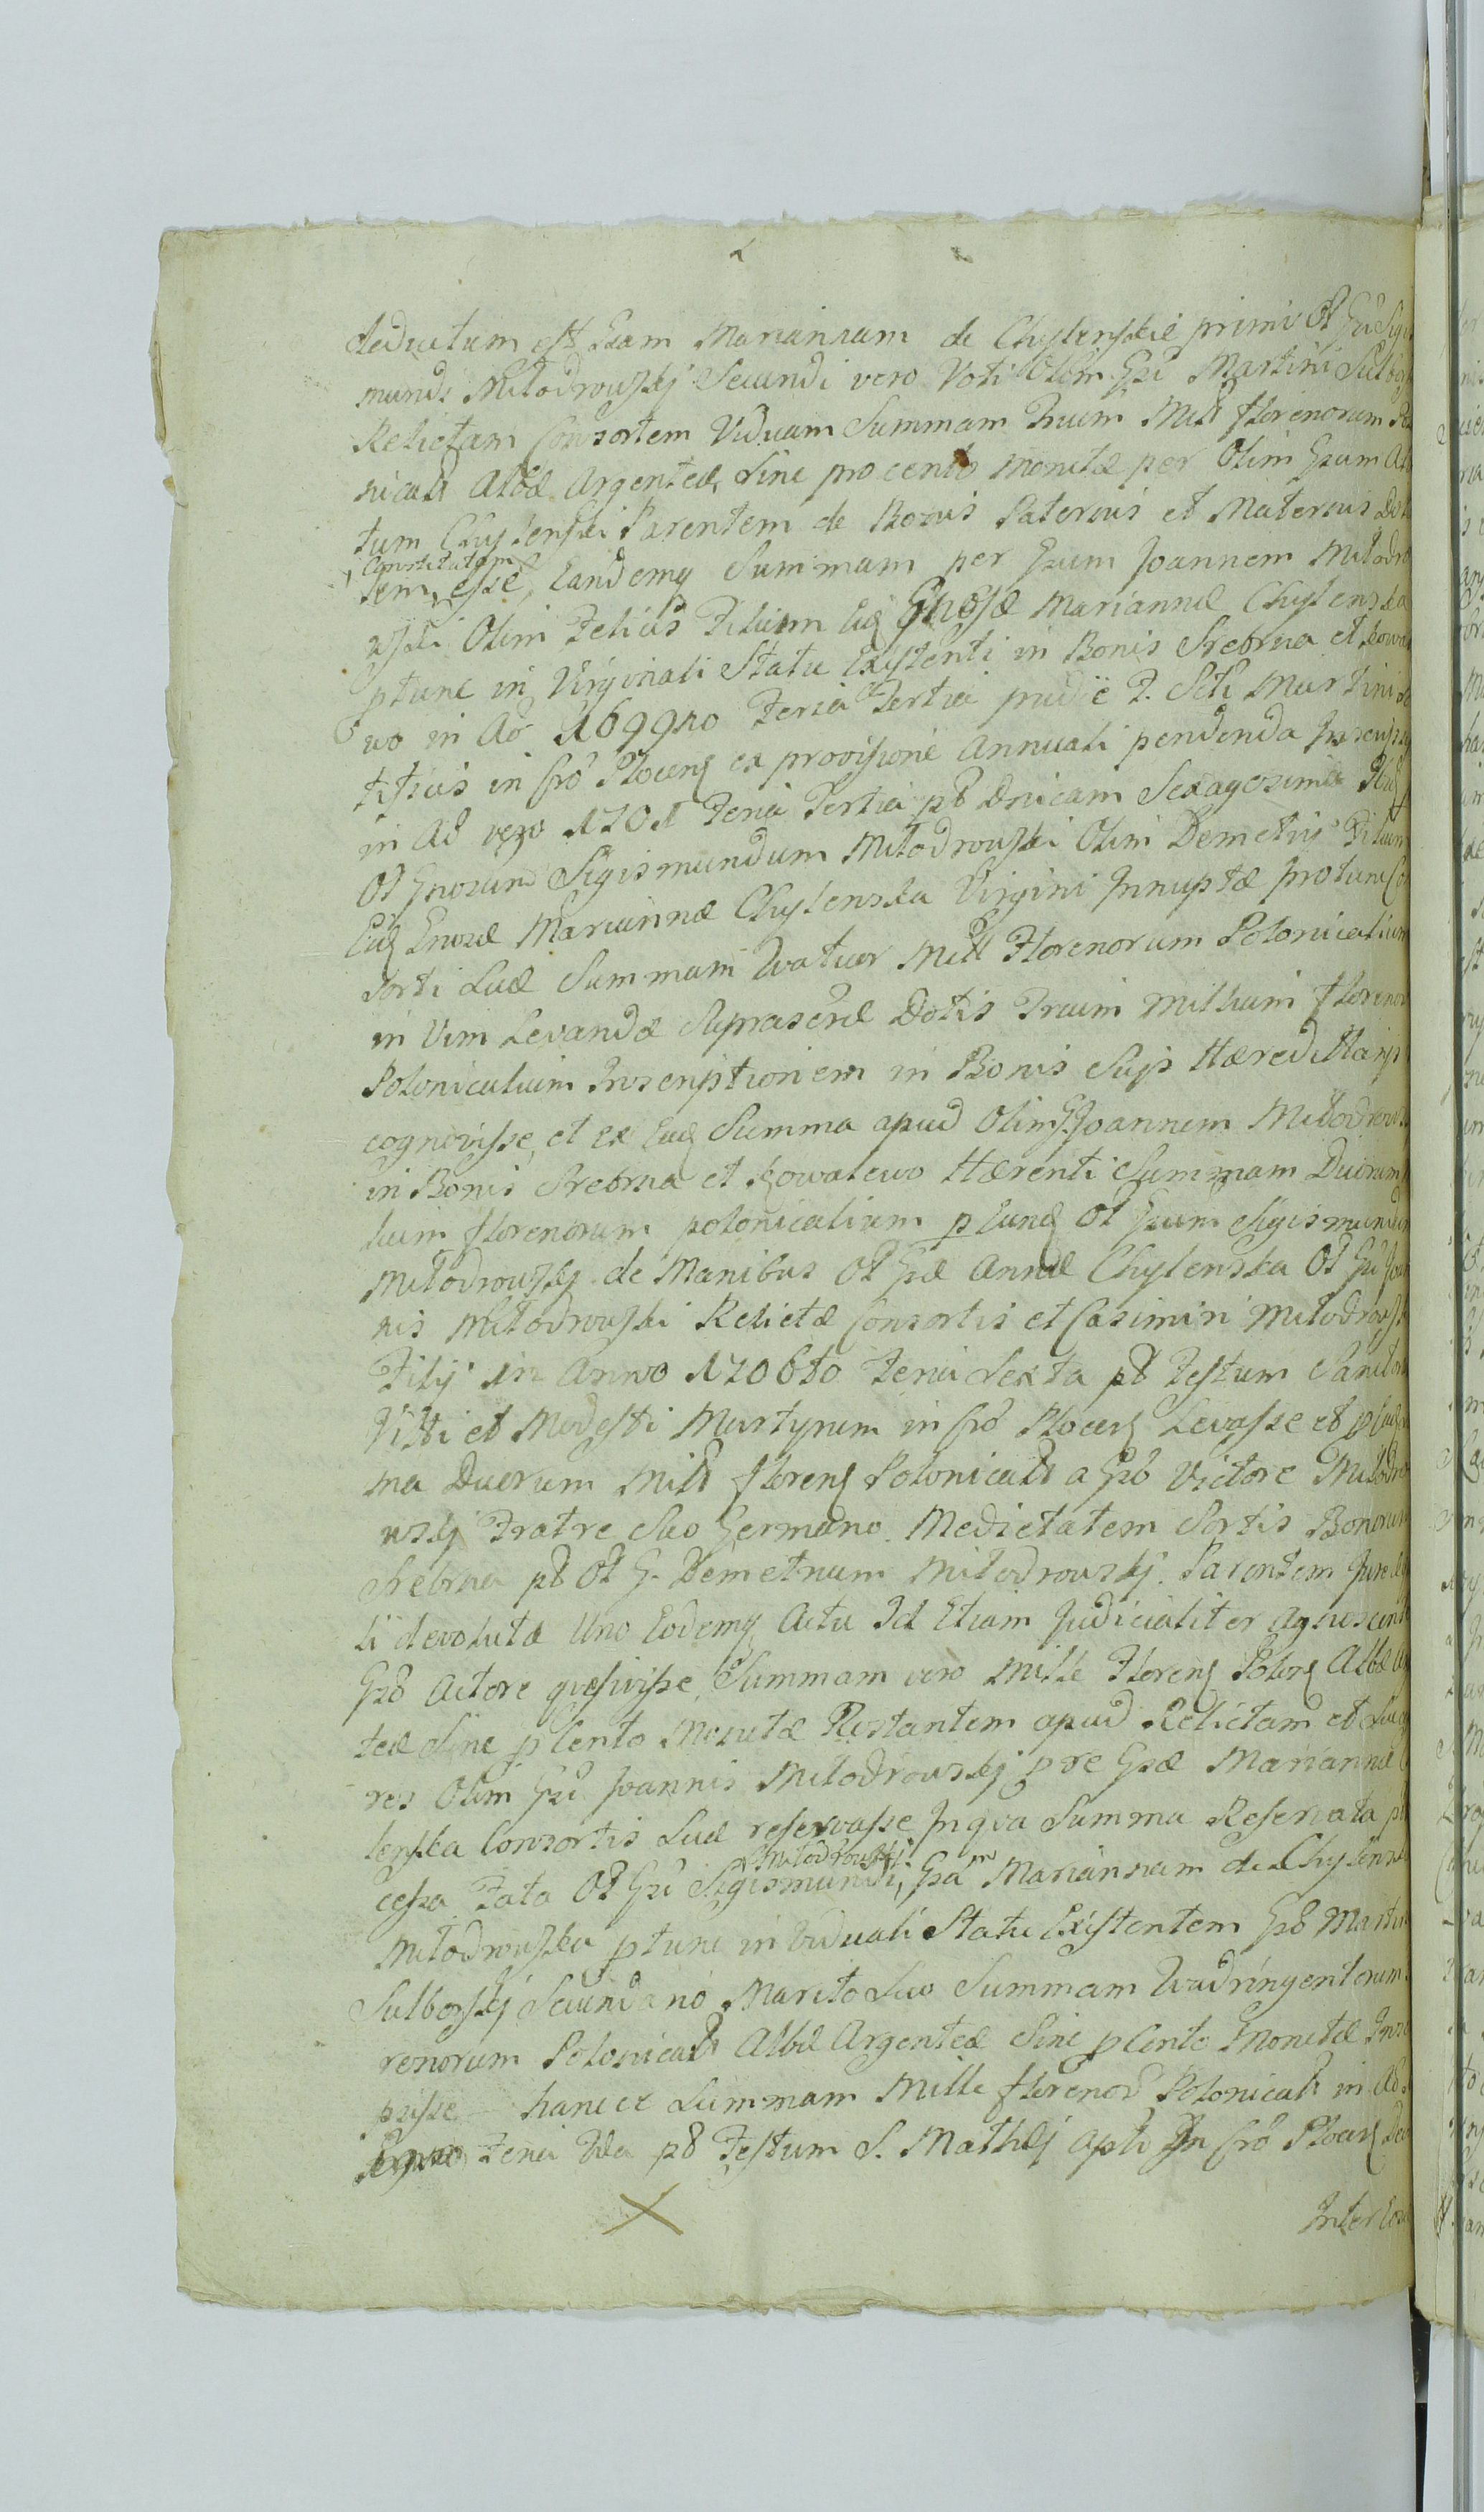 deductum est Gzam Mariannam de Chylenskie primi Ol Gzi Sigis
mundi Miłodrowskj Secundi vero Voti Olim Gzi Martini Sulbor
Relictam Consortem Viduam Summam Trium Mill florenorum Po
nicali Albæ Argenteæ, sine pro cento monetæ per Olim Gzum
tum Chylenski Parentem de Bonis Paternis et Maternis Do
Constitutam
tem esse, Eandemq Summam per Gzum Joannem Miłodro
wski Olim Felicis Filium Euq Gnosæ Mariannæ Chylenska
ptunc in Virginali Statu Existenti in Bonis Srebrna et Kowa
wo in Aō 1699no Feria Tertia pridie F. Scti Martini
in Cro Plocen ex provisione annuali pendenda Inscrip
in Ao vero 1701 Feria Tertia pt Dnicam Sexagesimæ
Ol Gnosum Sigismundum Miłodrowski Olim Demetrij Filium
Euq Gnosæ Mariannæ Chylenska Virgini Innuptæ protunc Con
sorti Suæ Summam Quatuor Mill Florenorum Polonicalium
in Vim Levandæ Suprascræ Dotis Trium Millium floreno
Polonicalium Inscriptionem in Bonis Suis Hæreditarijs
cognovisse, et ex Eaq Summa apud Olim G Joannem Miłodrows
in Bonis Srebrna et Kowalewo Hærenti Summam Duorum
lium florenorum polonicalium p Eunq Ol Gzum Sigismundum
Miłodrowskj de Manibus Ol Gzæ Annæ Chylenska Ol Gzi Joan
nis Miłodrowski Relictæ Consortis et Casimiri Miłodrowsk
Filij in Anno 1706to Feria Sexta pt Festum Sanctor
Viti et Modesti Martyrum in Cro Plocen Levasse et
ma Duorum Mill floren Polonicali a Gzo Victore Miłodro
wskj Fratre Suo Germano Medietatem Sortis Bonorum
Srebrna pt Ol G. Demetrium Miłodrowskj Parentem Jure
li devolutæ Uno Eodemq Actu Id Etiam Judicialiter Agnoscent
Gzo Actore qvesivisse, Summam vero Mille Floren Polon Albæ
teæ Sine p Cento Monetæ Restantem apud Relictam et Suc
res Olim Gzi Joannis Miłodrowskj pte Gzæ Mariannæ
lenska Consortis Suæ reservasse In qva Summa Reservata
Miłodrowskj
cessa Fata Ol Gzi Sigismundi, Gzam Mariannam de Chylenskie
Miłodrowska ptunc in Viduali Statu Existentem Gzo Martin
Sulborskj Secundano Marito Suo Summam Quadringentorum
renorum Polonicali Albæ Argenteæ Sine p Cento Monetæ Ins
psisse hanc et Summam Mille florenor Polonicali in Ao
Feria 2da pt Festum S. Mathei Apli In Cro Plocen
Inter